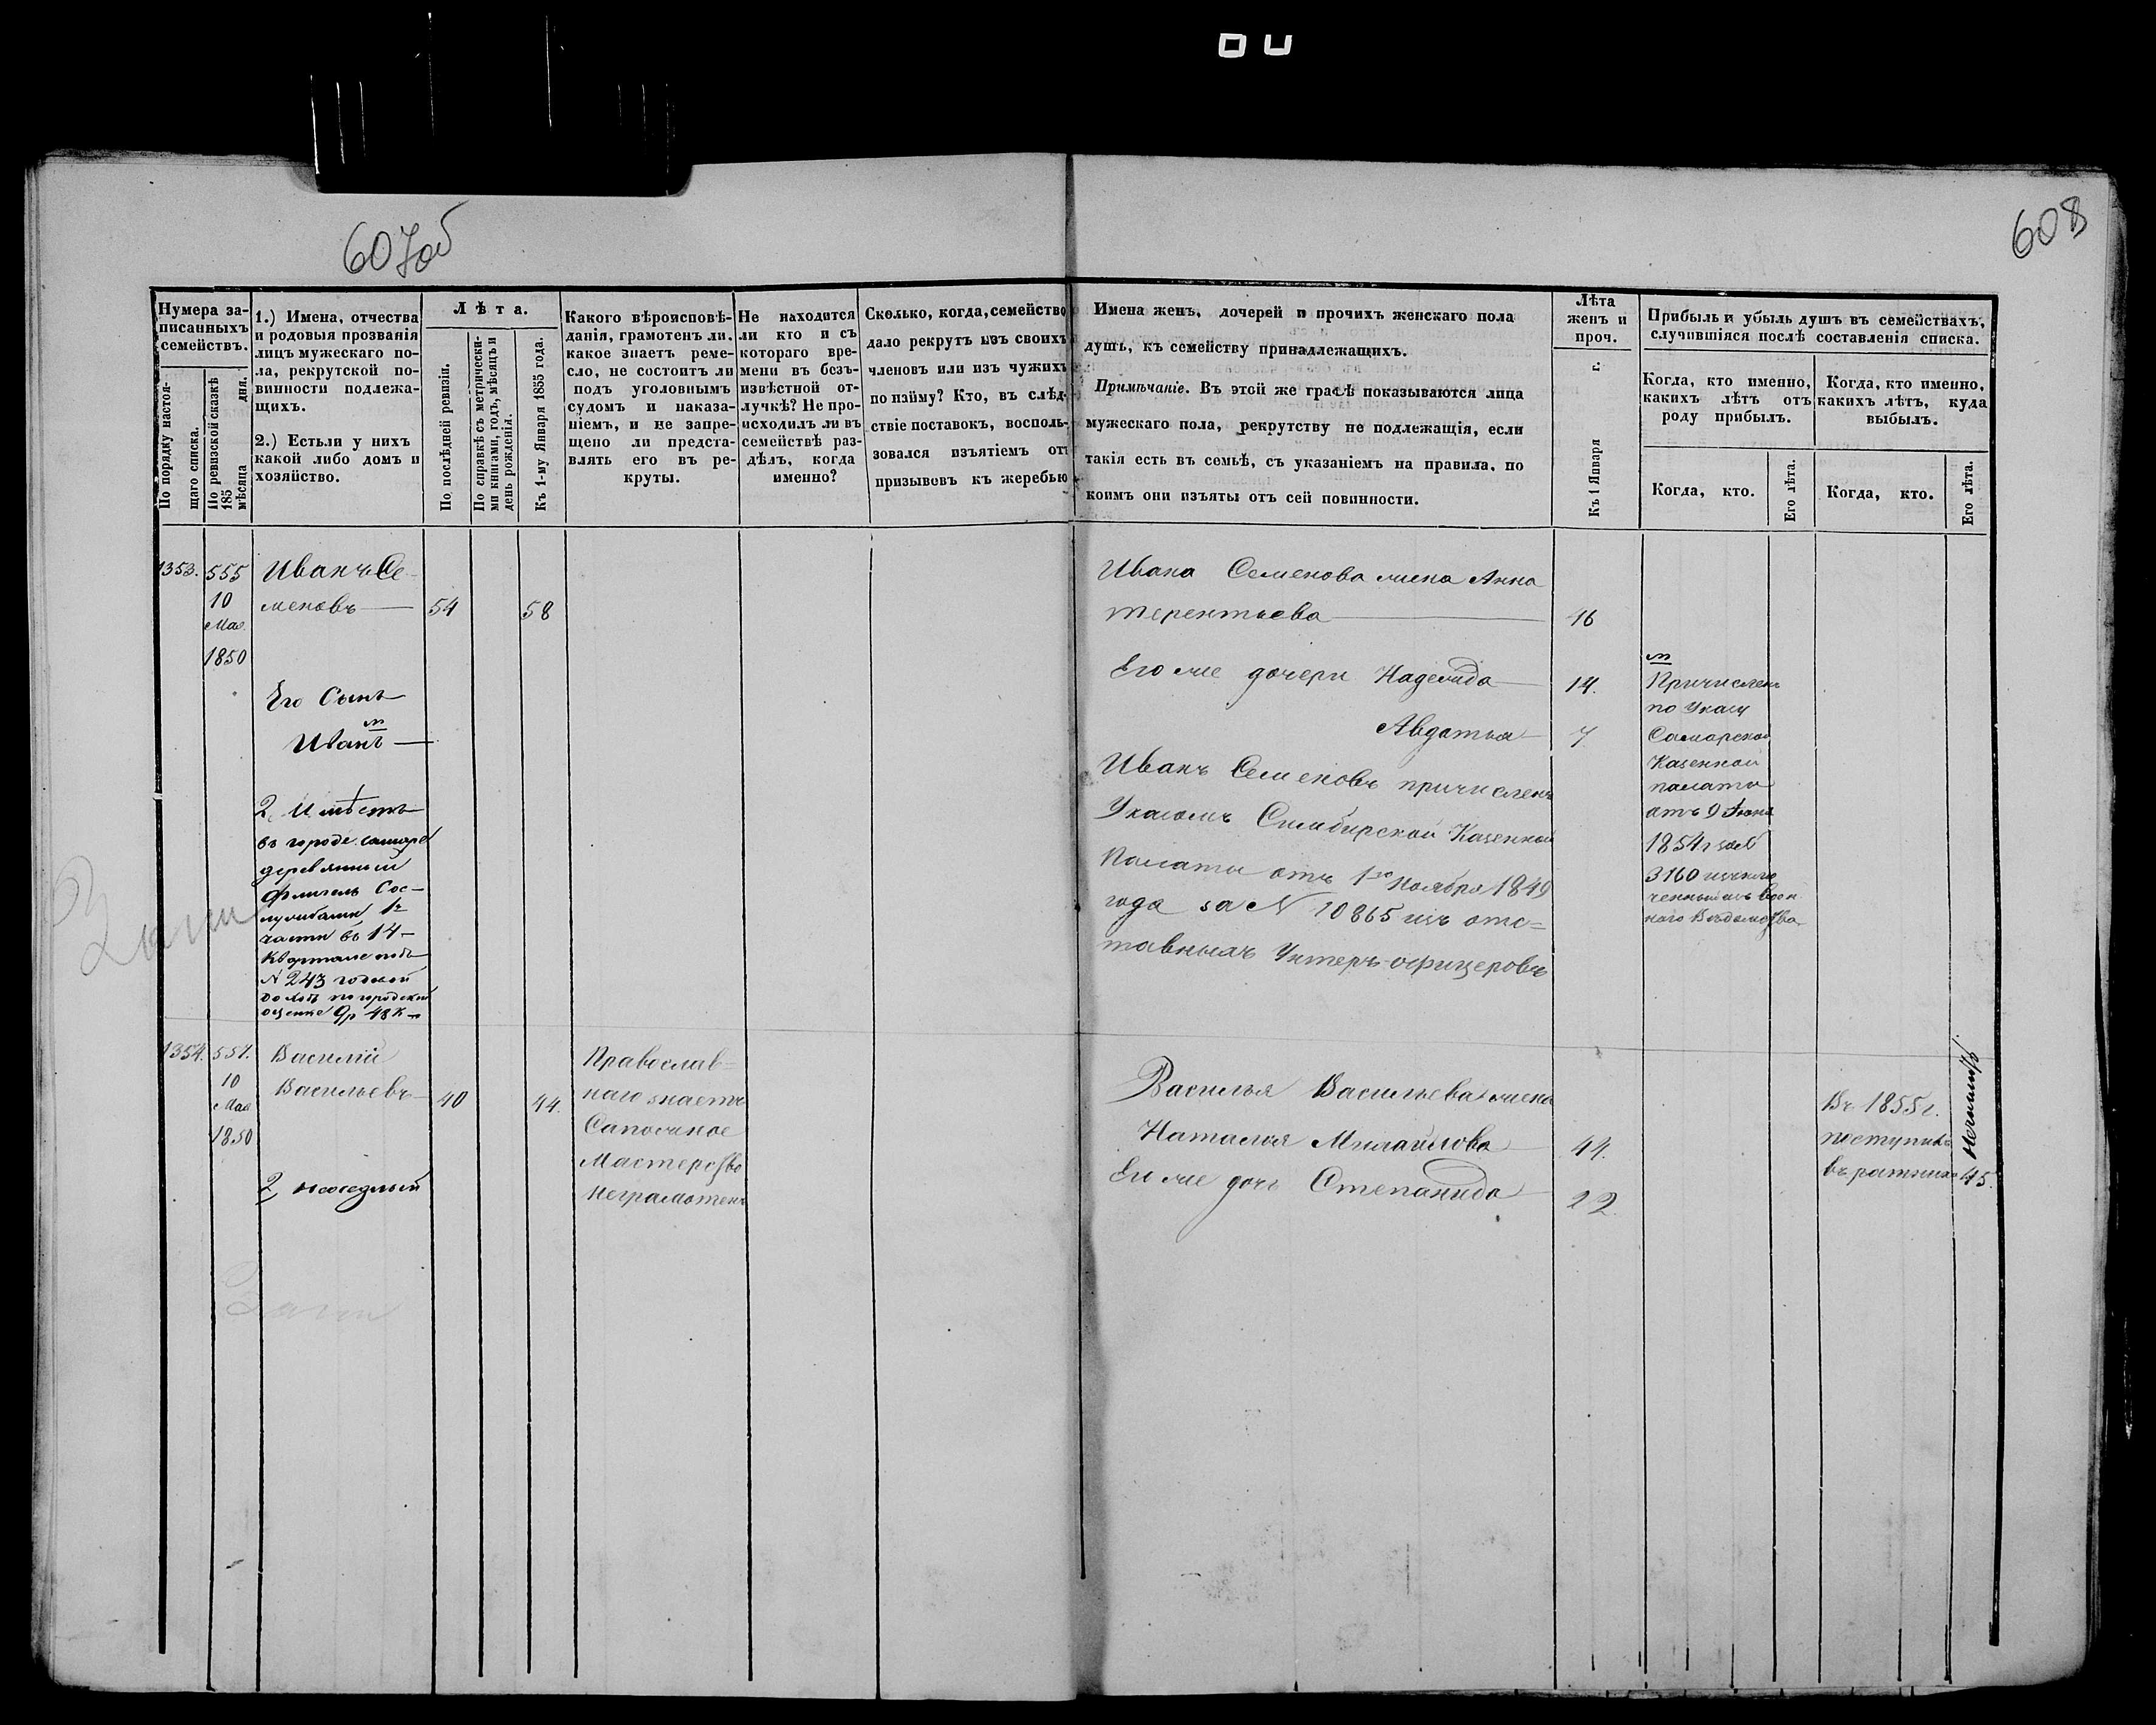 607об
608
Нумера за-
писанныхъ
семействъ.
По порядку настоя-
щаго списка.
По ревизской сказкѣ
185 дня,
мѣсяца
1.) Имена, отчества
и родовыя прозванія
лицъ мужескаго по-
ла, рекрутской по-
винности подлежа-
щихъ.
2.) Естьли у нихъ
какой либо домъ и
хозяйство.
Лѣта.
По послѣдней ревизіи.
По справкѣ съ метрически-
ми книгами, годъ, мѣсяцъ и
день рожденія.
Къ 1-му Января 1855 года.
Какого вѣроисповѣ-
данія, грамотенъ ли,
какое знаетъ реме-
сло, не состоитъ ли
подъ уголовнымъ
судомъ и наказа-
ніемъ, и не запре-
щено ли предста-
влять его въ ре-
круты.
Не находится
ли кто и съ
котораго вре-
мени въ безъ-
извѣстной от-
лучкѣ? Не про-
исходилъ ли въ
семействѣ раз-
дѣлъ, когда
именно?
Сколько, когда, семейство
дало рекрутъ изъ своихъ
членовъ или изъ чужихъ
по найму? Кто, въ слѣд-
ствіе поставокъ, восполь-
зовался изъятіемъ отъ
призывовъ къ жеребью
Имена женъ, дочерей и прочихъ женскаго пола
душъ, къ семейству принадлежащихъ.
Примѣчаніе. Въ этой же графѣ показываются лица
мужескаго пола, рекрутству не подлежащія, если
такія есть въ семьѣ, съ указаніемъ на правила, по
коимъ они изъяты отъ сей повинности.
Лѣта
женъ и
проч.
Къ 1 Января г.
Прибыль и убыль душъ въ семействахъ,
случившіяся послѣ составленія списка.
Когда, кто именно,
какихъ лѣтъ отъ
роду прибылъ.
Когда, кто именно,
какихъ лѣтъ, куда
выбылъ.
Когда, кто.
Его лѣта.
Когда, кто.
Его лѣта.
1353.
555
10
Мая
1850
Иванъ Се-
меновъ
54
58
Его Сынъ
Иванъ
2, Имѣетъ
въ городе Самаре
деревянный
флигель Сос-
лужбами 1й
части въ 14-
Квартале подъ
№ 243 годовой
доходъ по городской
оценке 9р 48к
Ивана Семенова жена Анна
Терентьева
46
Его же дочери Надежда
14.
Авдотья
7
Иванъ Семеновъ причисленъ
Указомъ Симбирской Казенной
Палаты отъ 1го Ноября 1849
года за № 10865 изъ отс=
тавныхъ Унтеръ-офицеровъ
Причисленъ
по Указу
Самарской
Казенной
палаты
отъ 9 Июня
1854 г за №
3160
наго Вѣдомства
1354.
557.
10
Мая
1850
Василій
Васильевъ
40
44.
2, неоседлый
Православ=
наго знаетъ
Сапожное
Мастерство
Неграмотенъ
Василья Васильева жена
Наталья Михайлова
44.
Ея же дочь Степанида
22.
Въ 1855 г.
поступилъ
въ ратники
45.